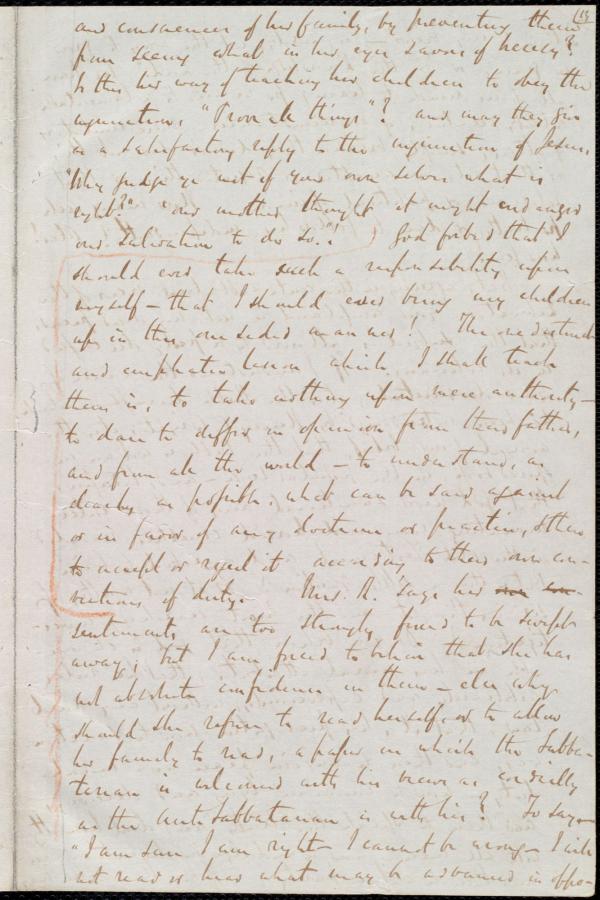 (15
and consciences of her family, by preventing them
from seeing what in her eyes savors of heresy?
Is this her way of teaching her children to obey the
injunction, "Prove all things"? and may they give
as a satisfactory reply to the injunction of Jesus,
"Why judge ye not of your own selves what is
right?" "our mother thought it might endanger
our salvation to do so."! God forbid that I
should ever take such a responsibility upon
myself — that I should ever bring my children
up in this one sided manner! The one distinct
and emphatic lesson which I shall teach
them is, to take nothing upon mere authority —
to dare to differ in opinion from their father,
and from all the world — to understand, as
clearly as possible, what can be said against
or in favor of any doctrine or practice, & then
to accept or reject it according to their own con-
victions of duty. Mrs. R. says her
sentiments are too strongly fixed to be swept
away; but I am forced to believe that she has
not absolute confidence in them — else why
should she refuse to read herself, or to allow
her family to read, a paper in which the Sabba-
tarian is welcomed with his views as cordially
as the anti Sabbatarian is with his? To say —
"I am sure I am right — I cannot be wrong — I will
not read or hear what may be advanced in oppo-